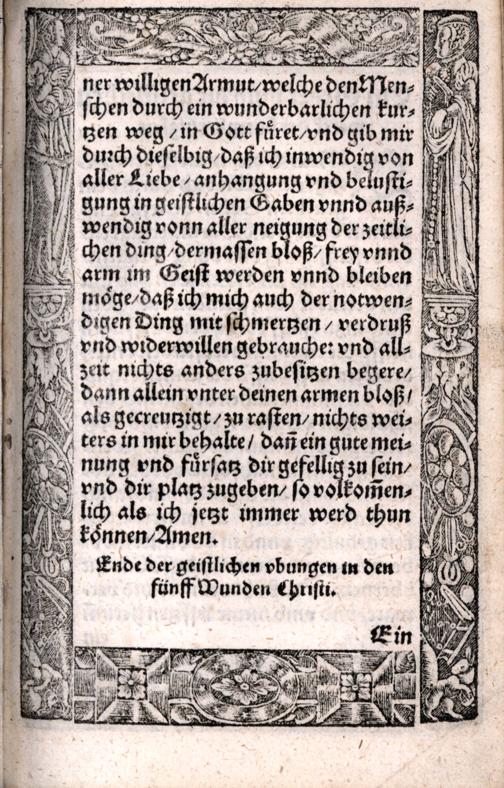 ner willigen Armut/welche den Men⸗
schen durch ein wunderbarlichen kur⸗
tzen weg /in Gott fuͤret/vnd gib mir
durch dieselbig/daß ich inwendig von
aller Liebe/anhangung vnd belusti⸗
gung in geistlichen Gaben vnnd auß⸗
wendig vonn aller neigung der zeitli⸗
chen ding/dermassen bloß/frey vnnd
arm im Geist werden vnnd bleiben
moͤge/daß ich mich auch der notwen⸗
digen Ding mit schmertzen/verdruß
vnd widerwillen gebrauche: vnd all⸗
zeit nichts anders zubesitzen begere/
dann allein vnter deinen armen bloß/
als gecreutzigt/zu rasten/nichts wei⸗
ters in mir behalte/dañ ein gute mei⸗
nung vnd fuͤrsatz dir gefellig zu sein/
vnd dir platz zugeben/so volkom̃en⸗
lich als ich jetzt immer werd thun
koͤnnen/Amen.
Ende der geistlichen vbungen in den
fuͤnff Wunden Christi.
Ein